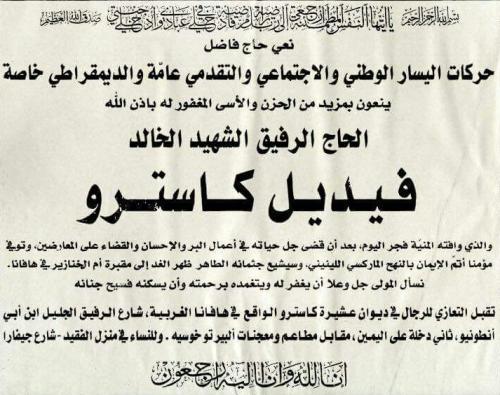 بسم الله الرحمن الرحيم يا أيتها النفس المطمئنة ارجعي إلى ربك راضية مرضية فادخلي في عبادي وادخلي جنتي صدق الله العظيم
نعي حاج فاضل
حركات اليسار الوطني والاجتماعي والتقدمي عامّة والديمقراطي خاصة
ينعون بمزيد من الحزن والأسى المغفور له باذن الله
الحاج الرفيق الشهيد الخالد
فيديل كاسترو
والذي وافته المنيّة فجر اليوم، بعد أن قضى جل حياته في أعمال البر والإحسان والقضاء على المعارضين، وتوفي
مؤمنا أتمّ الإيمان بالنهج الماركسي اللينيني، وسيشيع جثمانه الطاهر ظهر الغد إلى مقبرة أم الخنازير في هافانا.
نسأل المولى جل وعلا أن يغفر له ويتغمده برحمته وأن يسكنه فسيح جنانه
تقبل التعازي للرجال في ديوان عشيرة كاسترو الواقع في هافانا الغربية، شارع الرفيق الجليل ابن أبي
أنطونيو، ثاني دخلة على اليمين، مقابل مطاعم ومعجنات ألبير توخوسيه . وللنساء في منزل الفقيد -شارع جيفارا
انا لله وانا اليه راجعون